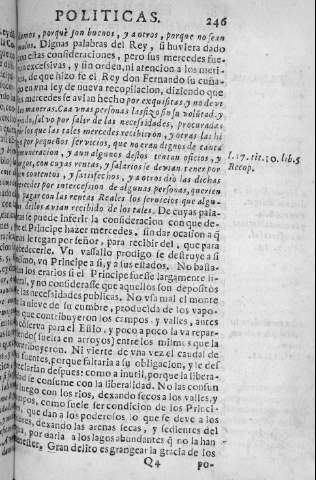 POLITICAS. 246
buenos, y a otros, porque no sean
Dignas palabras del Rey, si huviera dado
estas consideraciones, pero sus mercedes fue-
excessivas, y sin orden, ni atencion a los meri-
de que hizo fe el Rey don Fernando su cuña-
en vna ley de nueva recopilacion, diziendo que
mercedes se avian hecho por exquisitas y no devi
maneras. Caa vnas personas las fizo sin su volũtad, y
salvo por salir de las necessidades, procuradas
los que las tales mercedes recibieron, y otras las hi
por pequeños servicios, que no eran dignos de tanta
remuneracion, y aun algunos destos tenian oficios, y
con cuyas rentas, y salarios se devian tener por
contentos, y satisfechos, y a otros dio las dichas
mercedes por intercession de algunas personas, querien
pagar con las rentas Reales los servicios que algu-
dellos avian recibido de los tales. De cuyas pala-
se puede inferir la consideracion con que de-
el Principe hazer mercedes, sin dar ocasion a q̃
le tengan por señor, para recibir del, que para
obedecerle. Vn vassallo prodigo se destruye a si
mismo, vn Principe a si, y a sus estados. No basta-
los erarios si el Principe fuesse largamente li-
y no considerasse que aquellos son depositos
las necessidades publicas. No vsa mal el monte
la nieve de su cumbre, producida de los vapo-
que contribuyeron los campos y valles, antes
conserva para el Estio, y poco a poco la va repar-
(suelta en arroyos) entre los mismos que la
contribuyeron. Ni vierte de vna vez el caudal de
fuentes, porque faltaria a su obligacion, y le des-
despues: como a inutil, porque la libera-
se consume con la liberalidad. No las confun
luego con los rios, dexando secos a los valles, y
campos, como suele ser condicion de los Princi-
que dan a los poderosos lo que se deve a los
dexando las arenas secas, y sedientes del
por darla a los lagos abundantes q̃ no la han
menester. Gran delito es grangear la gracia de los
Q4 po-
L. 17. tit. 10. lib. 5
Recop.